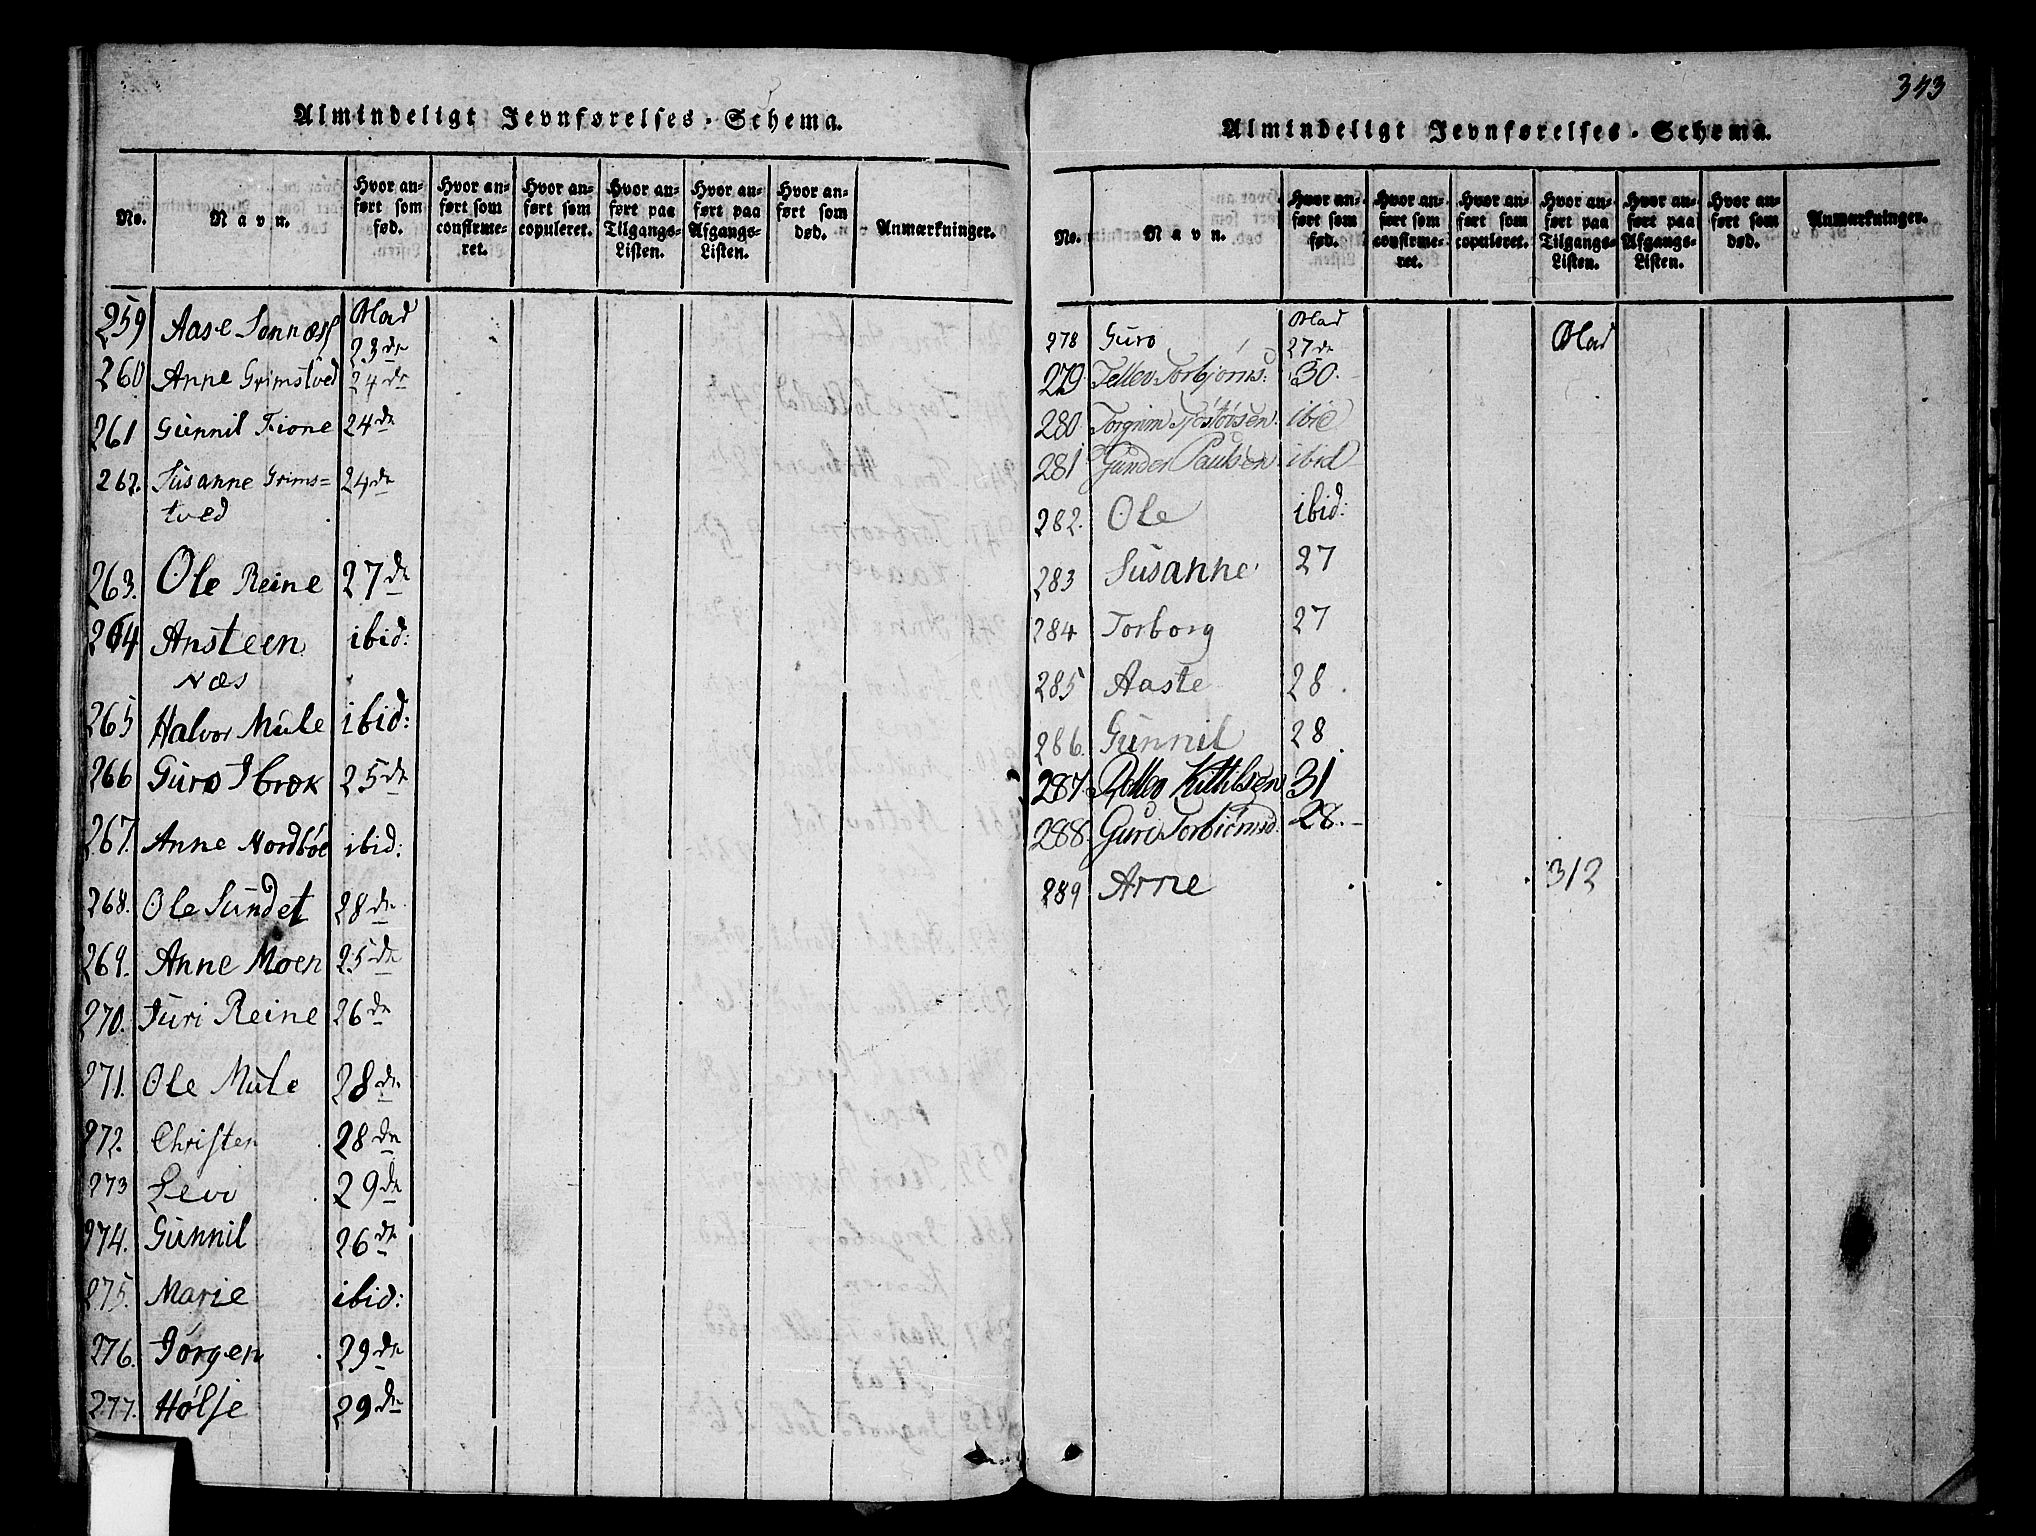 Almindeligt Jevnførelses-Schema.
No.
Navn.
Hvor an-
ført som
fød.
Hvor an-
ført som
confirme-
ret.
Hvor an-
ført som
copuleret.
Hvor an-
ført paa
Tilgangs-
Listen.
Hvor an-
ført paa
Afgangs-
Listen.
Hvor an-
ført som
død.
Anmærkninger.
Blad
259 Aase Sannæss 23de
260 Anne Grimstved 24de
261 Gunnil Fione 24de
262. Susanne Grims= 24de
tved
263. Ole Reine 27de
264 Ansteen ibid:
Næs
265 Halvor Mule ibid:
266 Guro Ibrek 25de
267. Anne Nordbøe ibid:
268. Ole Sundet 28de
269. Anne Moen 25de
270. Turi Reine 26de
271. Ole Mule 28de
272. Christen 28de
273 Levi 29de
274. Gunnil 26de
275. Marie ibid:
276. Jørgen 29de
277. Hølje 29de
343
Almindeligt Jevnførelses-Schema.
No.
Navn.
Hvor an-
ført som
fød.
Hvor an-
ført som
confirme-
ret.
Hvor an-
ført som
copuleret.
Hvor an-
ført paa
Tilgangs-
Listen.
Hvor an-
ført paa
Afgangs-
Listen.
Hvor an-
ført som
død.
Anmærkninger.
Blad Blad
278 Guro 27de
279 Tellev Torbjørns: 30.
280. Torgrim Tjøstølsen. ibid
281 Gunder Paulsen ibid
282. Ole ibid:
283 Susanne 27
284 Torborg 27
285 Aaste 28.
286. Gunnil 28
287. Tellev Kittilsen 31
288. Guri Torbiørnsd. 28.
289 Arne . . . 312